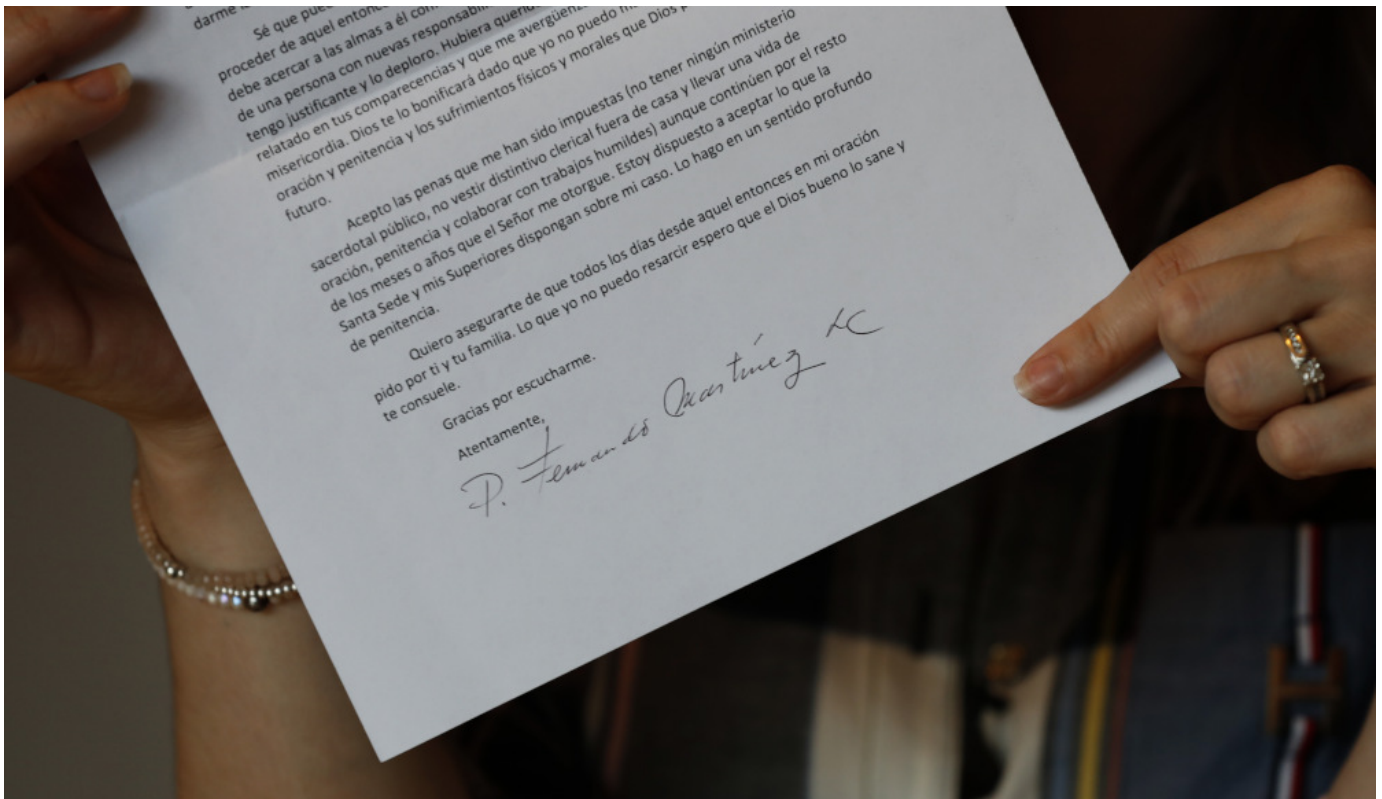 darme
Sé que pue
proceder de aquel entonc
debe acercar a las almas a él com
de una persona con nuevas responsabili
tengo justificante y lo deploro. Hubiera querid
relatado en tus comparecencias y que me avergüenz
misericordia. Dios te lo bonificará dado que yo no puedo m
oración y penitencia y los sufrimientos físicos y morales que Dios p
futuro.
Acepto las penas que me han sido impuestas (no tener ningún ministerio
sacerdotal público, no vestir distintivo clerical fuera de casa y llevar una vida de
oración, penitencia y colaborar con trabajos humildes) aunque continúen por el resto
de los meses o años que el Señor me otorgue. Estoy dispuesto a aceptar lo que la
Santa Sede y mis Superiores dispongan sobre mi caso. Lo hago en un sentido profundo
de penitencia.
Quiero asegurarte de que todos los días desde aquel entonces en mi oración
pido por ti y tu familia. Lo que yo no puedo resarcir espero que el Dios bueno lo sane y
te consuele.
Gracias por escucharme.
Atentamente,
P. Fernando Martínez LC
H